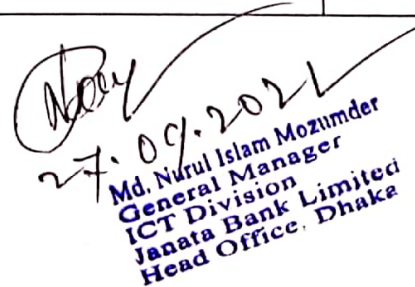 27.09.2021
Md. Nurul Islam Mozumder
General Manager
ICT Division
Janata Bank Limited
Head Office, Dhaka